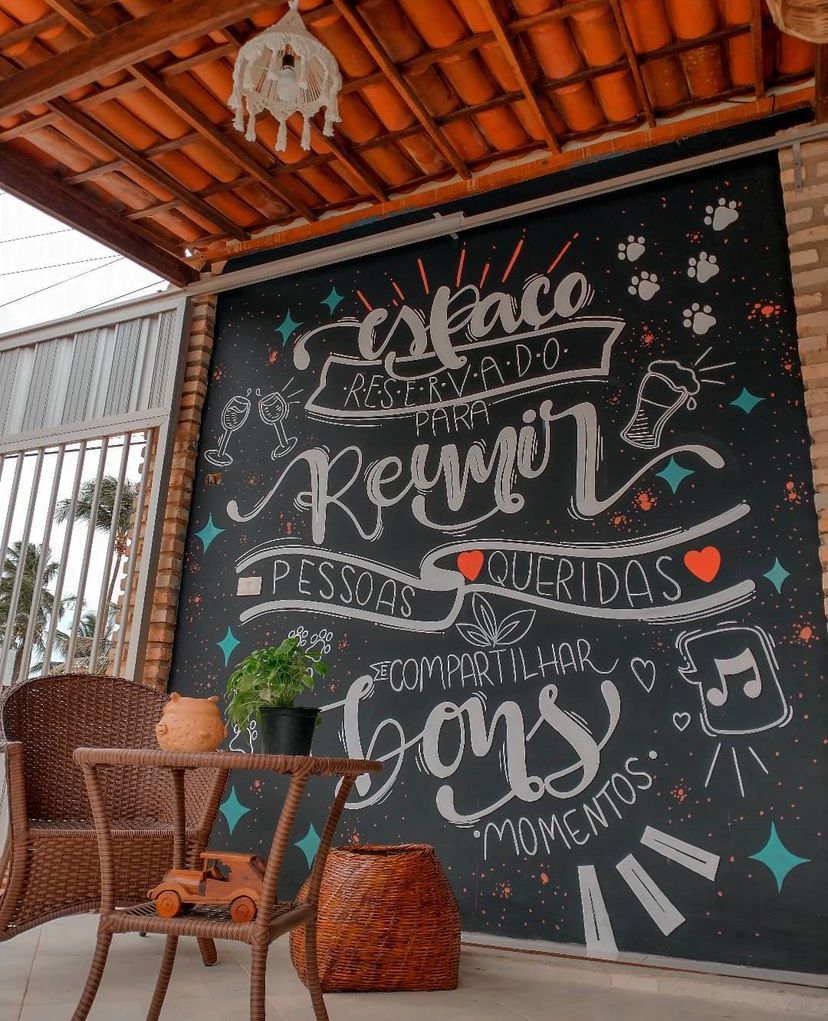 espaço
·RESERVADO·
PARA
Reunir
PESSOAS QUERIDAS
E COMPARTILHAR
bons
·MOMENTOS·